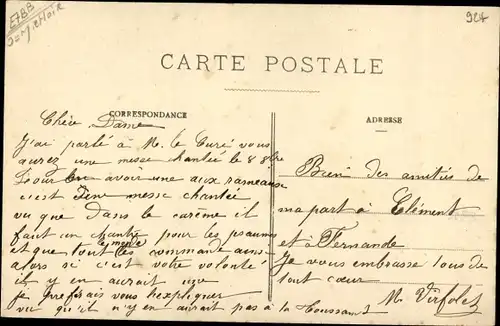 E7BB
S=Mithoir
924
CARTE POSTALE
CORRESPONDANCE
ADRESSE
Chère Dame
J'ai parlé à M. le Curé vous
aurez une messe chantée le 8 8bre
Pour en avoir une aux rameaux
c'est Jene messe chantée
vu que Dans le carême il
faut un chantre pour les psaumes
et que tout le monde les commande ains
alors si c'est votre volonté
il y en aurait une
je préférais vous hexpliquer
vu qu'il n'y en aurait pas à la Toussaint
Bien des amitiés de
ma part à Clément
et à Fernande
Je vous embrasse tous de
tout cœur
M. Virfolet